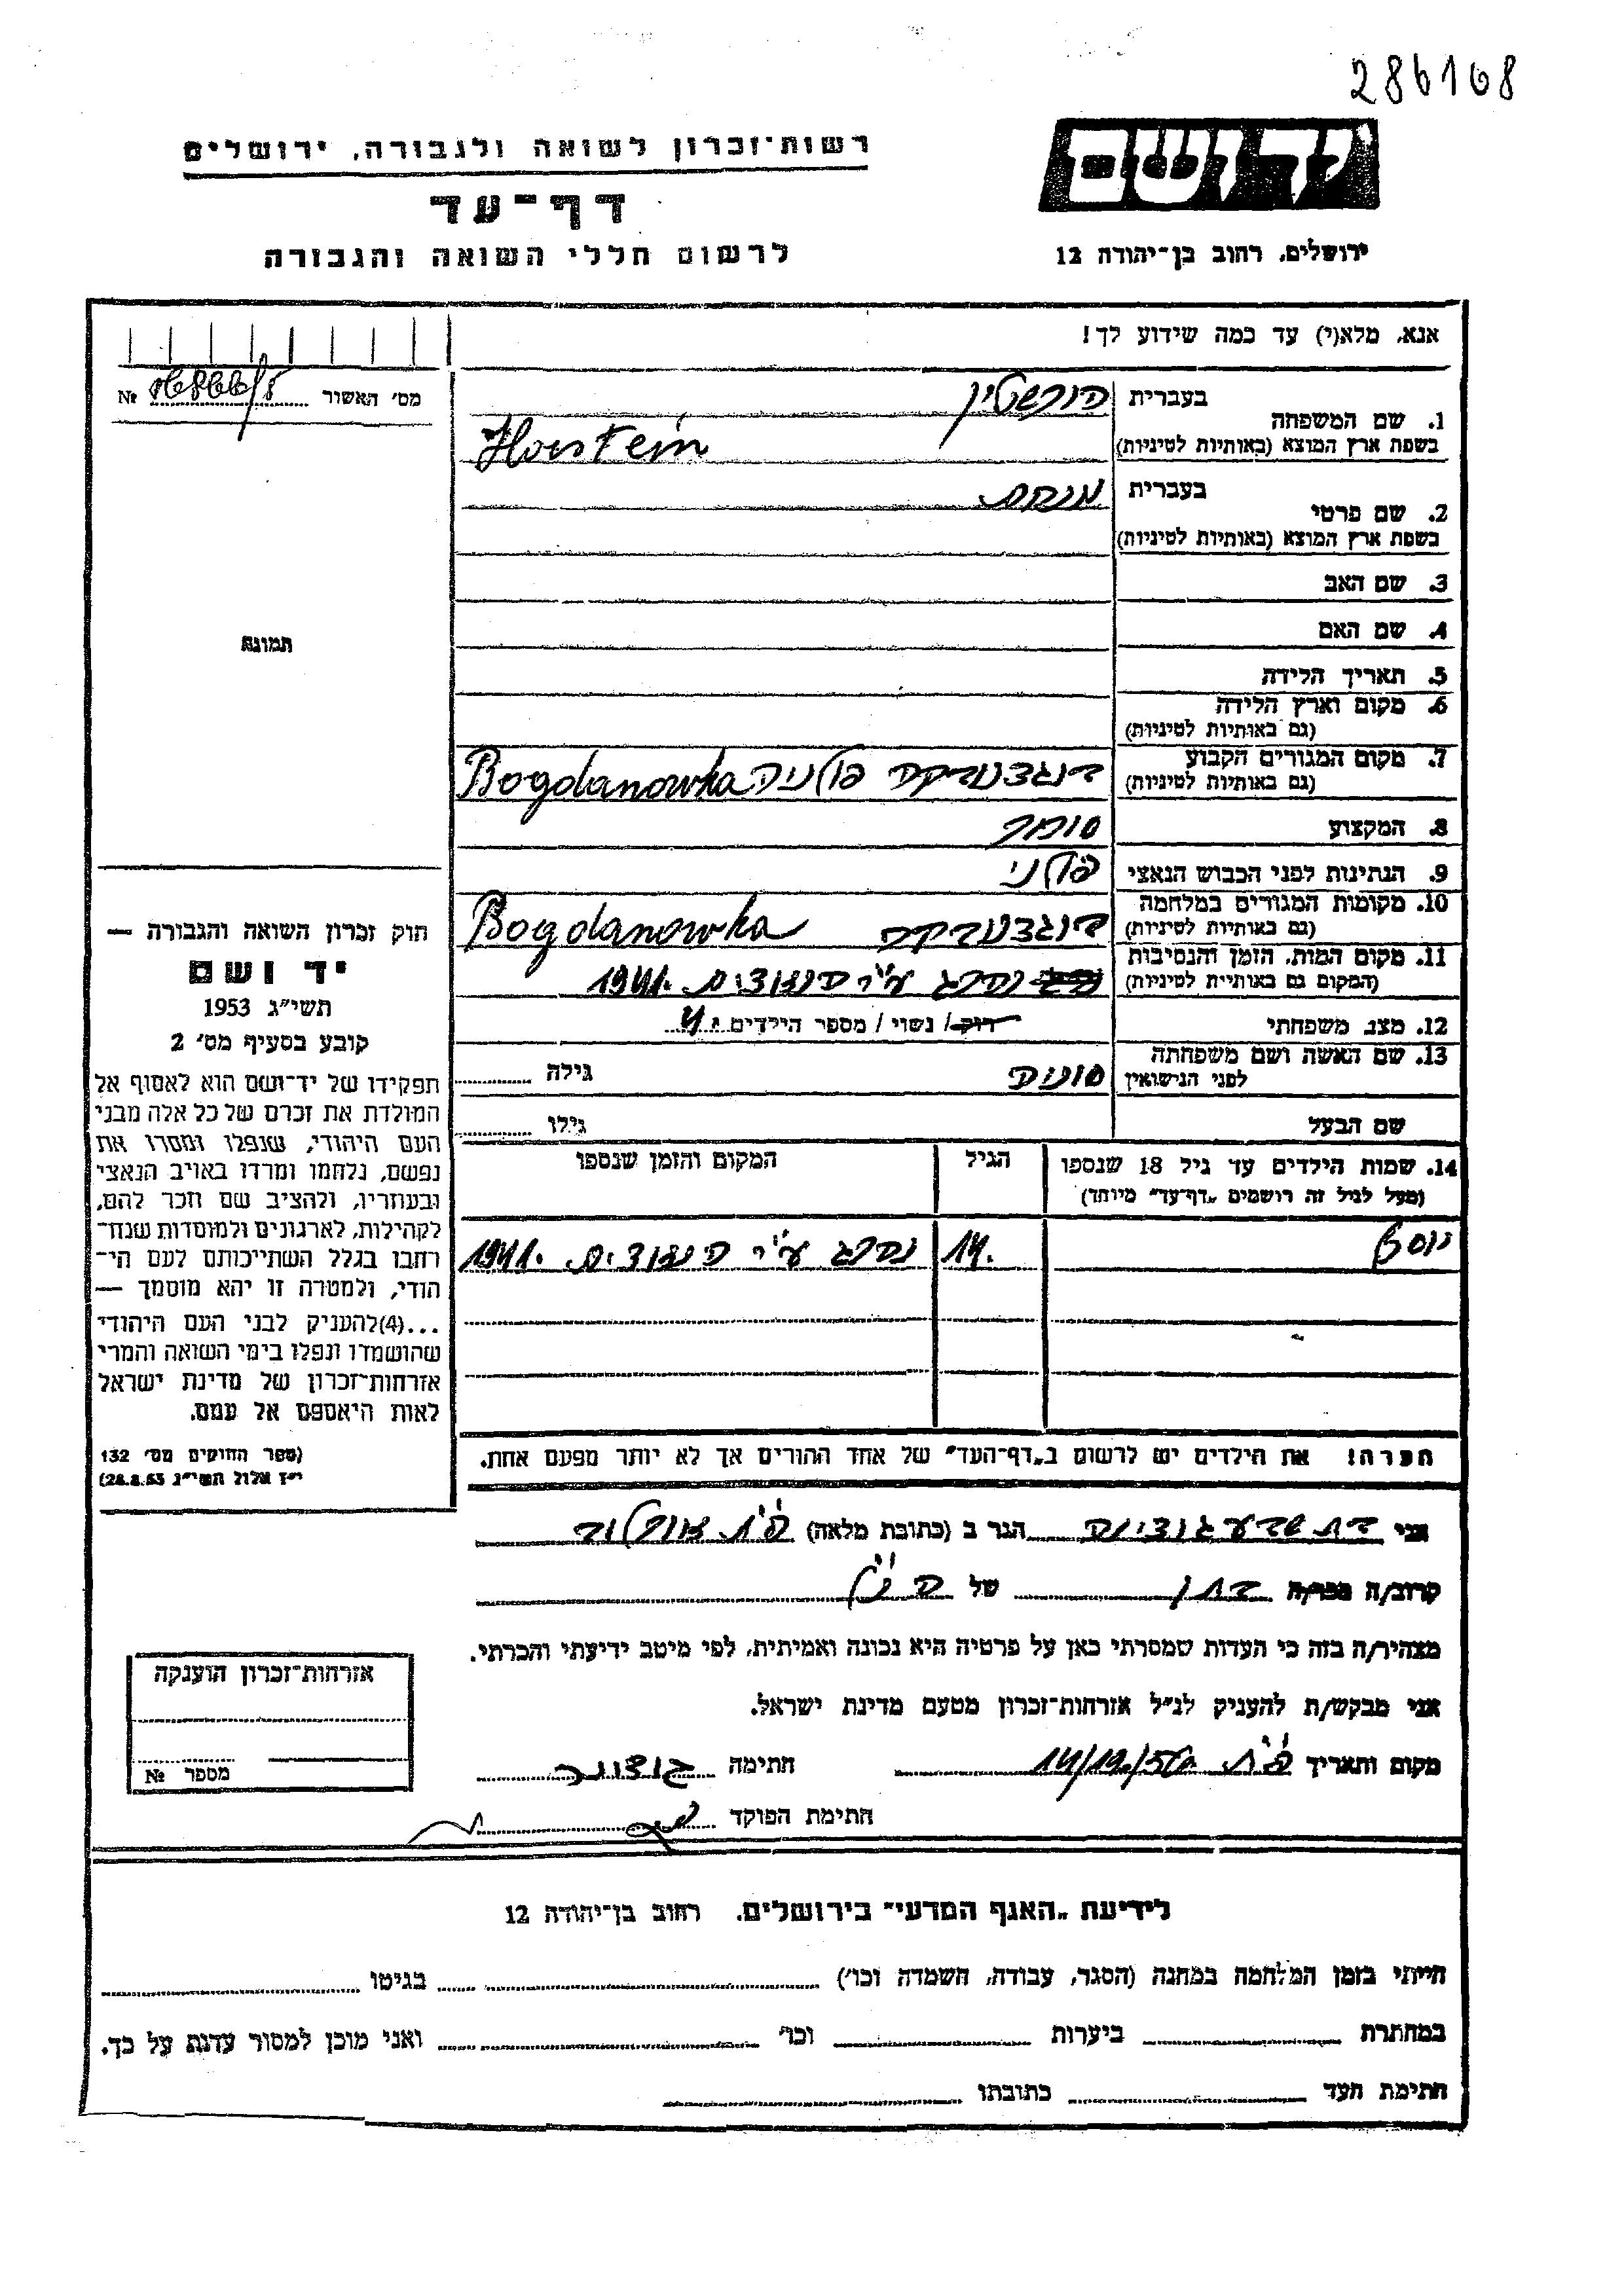 286168
רשות־זכרון לשואה ולגבורה, ירושלים
דף־עד
לרשום חללי השואה והגבורה
יד ושם
ירושלים, רחוב בן־יהודה 12
אנא, מלא(י) עד כמה שידוע לך!
מס׳ האשור № 
בעברית הורשטין
1. שם המשפחה
בשפת ארץ המוצא (באותיות לטיניות) Horstein
בעברית מנחם
2. שם פרטי
בשפת ארץ המוצא (באותיות לטיניות)
3. שם האב
4. שם האם
תמונה
5. תאריך הלידה
6. מקום וארץ הלידה
(גם באותיות לטיניות)
7. מקום המגורים הקבוע
(גם באותיות לטיניות) בוגדנובקה פולניה Bogdanowka
8. המקצוע סוחר
9. הנתינות לפני הכבוש הנאצי פולני
10. מקומות המגורים במלחמה
(גם באותיות לטיניות) בוגדנובקה Bogdanowka
11. מקום המות, הזמן והנסיבות
(המקום גם באותיות לטיניות) נהרג ע״י הנאצים 1941.
12. מצב משפחתי רוק/ נשוי/ מספר הילדים 4
13. שם האשה ושם משפחתה
לפני הנישואין סוניה גילה
שם הבעל גילו
14. שמות הילדים עד גיל 18 שנספו הגיל המקום והזמן שנספו
(מעל לגיל זה רושמים „דף־עד״ מיוחד)
יוסף 14. נהרג ע״י הנאצים 1941.
הערה! את הילדים יש לרשום ב„דף־העד״ של אחד ההורים אך לא יותר מפעם אחת.
חוק זכרון השואה והגבורה —
יד ושם
תשי״ג 1953
קובע בסעיף מס׳ 2
תפקידו של יד־ושם הוא לאסוף אל
המולדת את זכרם של כל אלה מבני
העם היהודי, שנפלו ומסרו את
נפשם, נלחמו ומרדו באויב הנאצי
ובעוזריו, ולהציב שם וזכר להם,
לקהילות, לארגונים ולמוסדות שנח־
רבו בגלל השתייכותם לעם הי־
הודי, ולמטרה זו יהא מוסמך —
...(4)להעניק לבני העם היהודי
שהושמדו ונפלו בימי השואה והמרי
אזרחות־זכרון של מדינת ישראל
לאות היאספם אל עמם.
(ספר החוקים מס׳ 132
י״ז אלול תשי״ג 28.8.53)
אני בת שבע הגר ב (כתובת מלאה) פ״ת
קרוב/ה מכר/ה של הנ״ל
מצהיר/ה בזה כי העדות שמסרתי כאן על פרטיה היא נכונה ואמיתית, לפי מיטב ידיעתי והכרתי.
אני מבקש/ת להעניק לנ״ל אזרחות־זכרון מטעם מדינת ישראל.
מקום ותאריך פ״ת 14/12/56 חתימה
חתימת הפוקד
אזרחות־זכרון הוענקה
מספר №
לידיעת „האגף המדעי״ בירושלים, רחוב בן־יהודה 12
הייתי בזמן המלחמה במחנה (הסגר, עבודה, השמדה וכו׳) בגיטו
במחתרת ביערות וכו׳ ואני מוכן למסור עדות על כך.
חתימת העד כתובתו